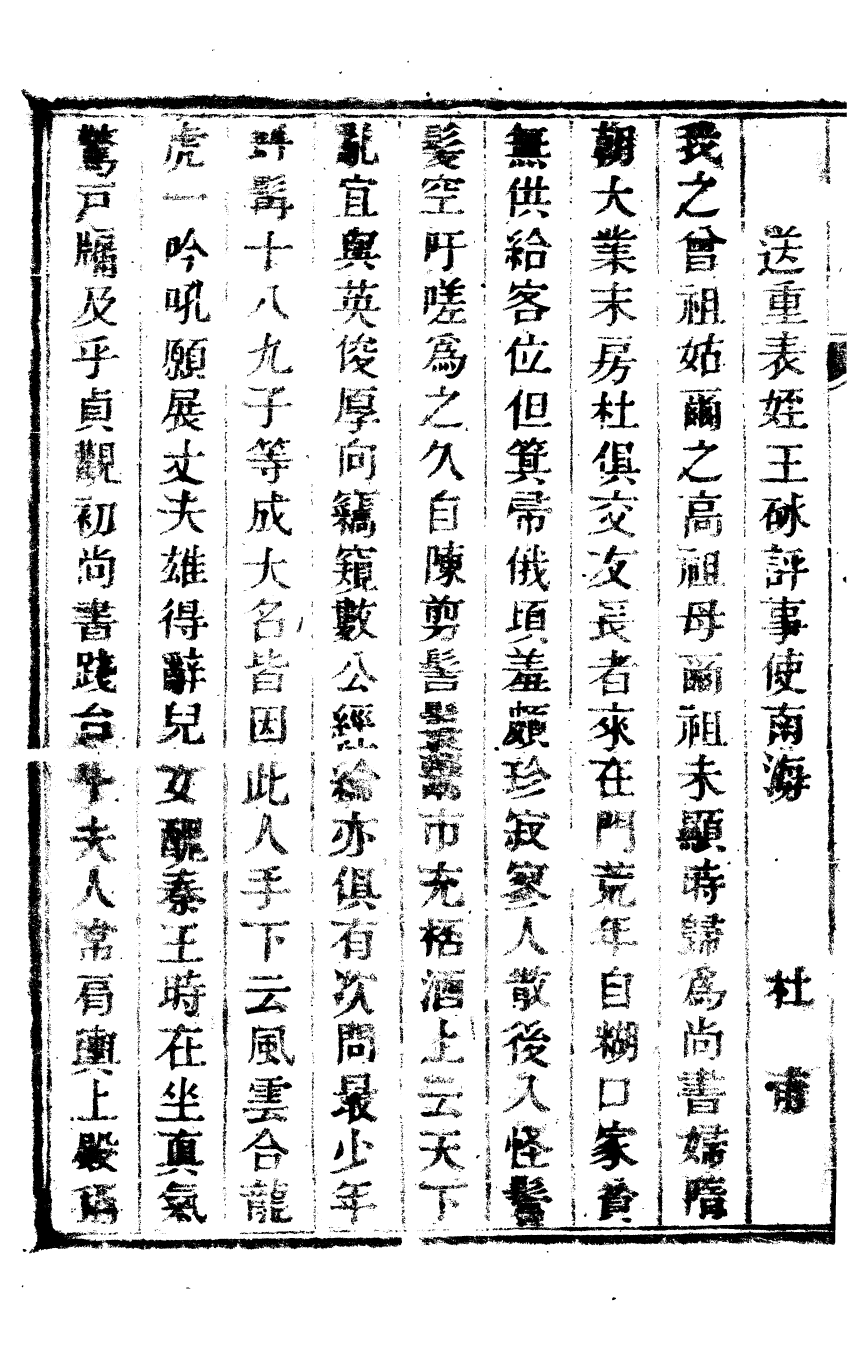 送重表姪王砅評事使南海 杜甫
我之曾祖姑爾之高祖母爾祖未顯時歸爲尚書婦隋
朝大業末房杜俱交友長者來在門荒年自糊口家貧
無供給客位但箕帚俄頃羞頗珍寂寥人散後入怪鬢
髮空吁嗟爲之久自陳剪髻鬟鬻市充桮酒上云天下
亂宜與英俊厚向竊窺數公經綸亦俱有次問最少年
虬髯十八九子等成大名皆因此人手下云風雲合龍
虎一吟吼願展丈夫雄得辭兒女醜秦王時在坐真氣
驚戸牖及乎貞觀初尚書踐台斗夫人常肩輿上殿稱